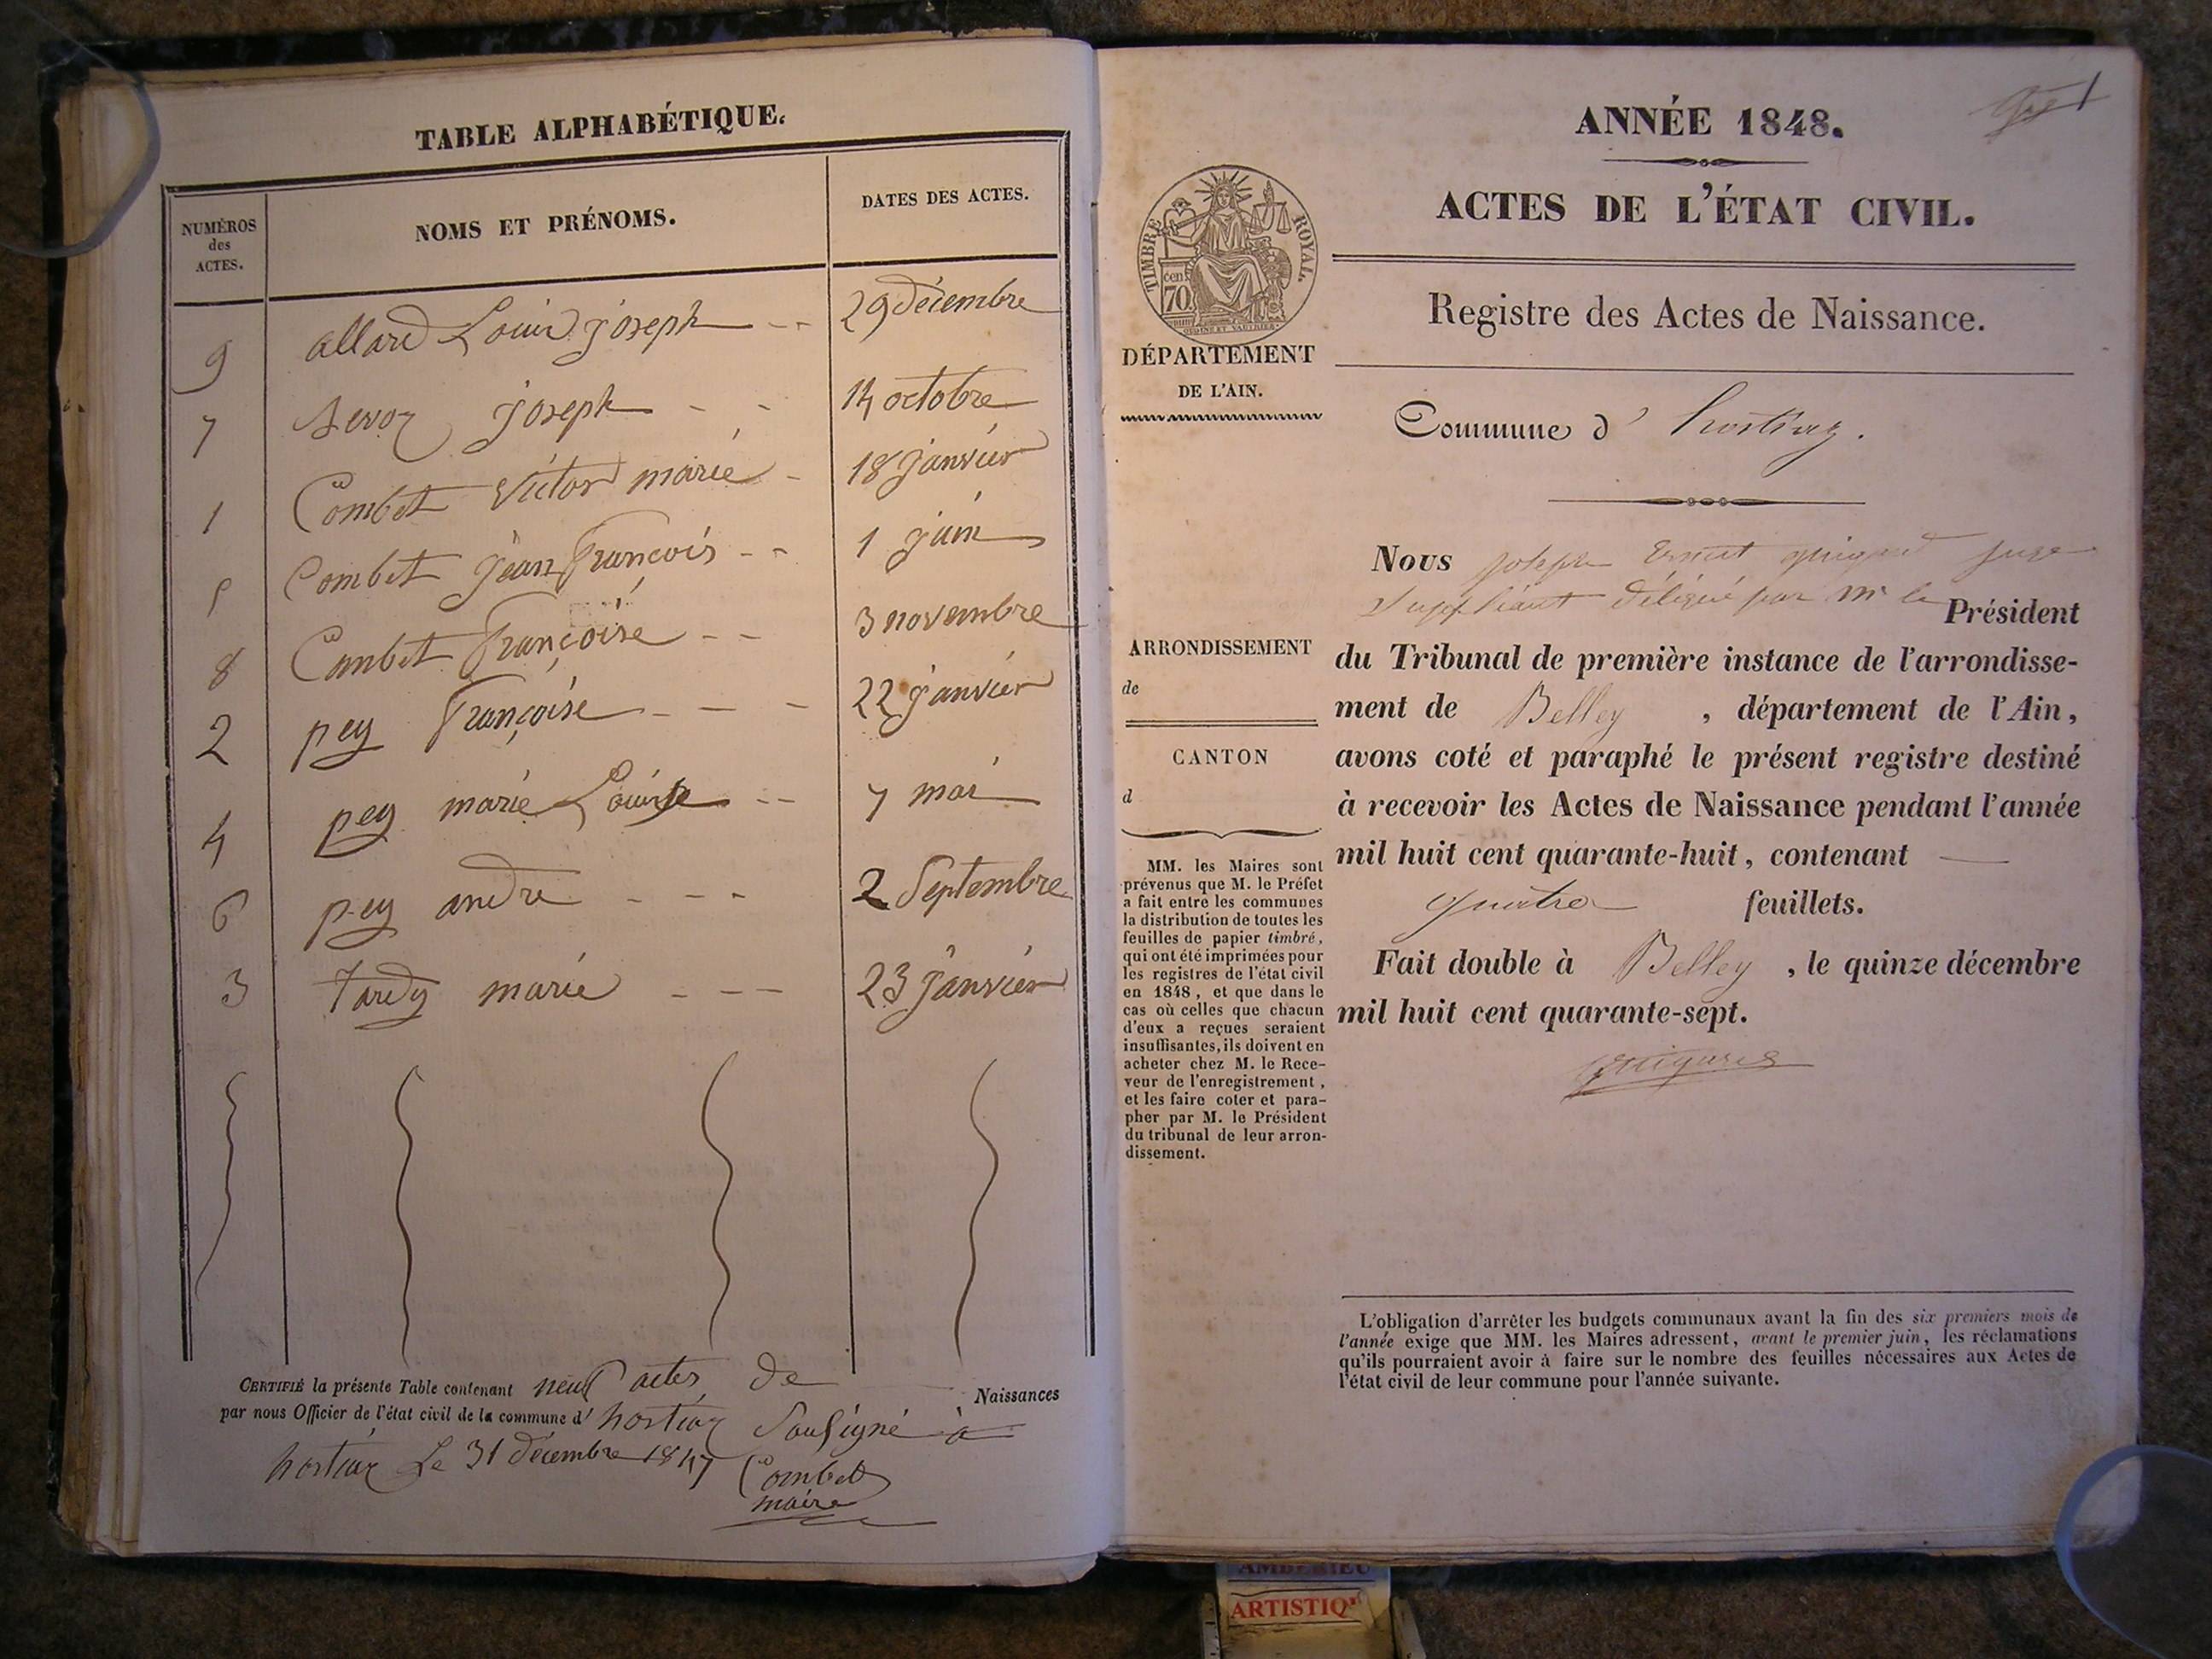 TABLE ALPHABÉTIQUE.
NUMÉROS des ACTES.
NOMS ET PRÉNOMS.
DATES DES ACTES.
9 allard Louis joseph -- 29 décembre
7 joseph - - 14 octobre
1 Combet Victor marie - 18 janvier
5 Combet jean françois -- 1 juin
8 Combet françoise -- 3 novembre
2 pey françoise --- 22 janvier
4 pey marie Louise -- 7 mai
6 pey andre --- 2 Septembre
3 Tardy marie --- 23 janvier
CERTIFIÉ la présente Table contenant neuf actes de Naissances
par nous Officier de l'état civil de la commune d' hostiaz Sousigné à
hostiaz Le 31 décembre 1847 Combet
maire
1
ANNÉE 1848.
ACTES DE L'ÉTAT CIVIL.
TIMBRE ROYAL
cen
70
Registre des Actes de Naissance.
DÉPARTEMENT
DE L'AIN.
Commune d' hostiaz.
Nous joseph Ernest juge
Suppléant délégué par Mr le Président
du Tribunal de première instance de l'arrondisse-
ment de Belley , département de l'Ain,
avons coté et paraphé le présent registre destiné
à recevoir les Actes de Naissance pendant l'année
mil huit cent quarante-huit, contenant —
quatre feuillets.
Fait double à Belley , le quinze décembre
mil huit cent quarante-sept.
ARRONDISSEMENT
de
CANTON
d
MM. les Maires sont
prévenus que M. le Préfet
a fait entre les communes
la distribution de toutes les
feuilles de papier timbré,
qui ont été imprimées pour
les registres de l'état civil
en 1848, et que dans le
cas où celles que chacun
d'eux a reçues seraient
insuffisantes, ils doivent en
acheter chez M. le Rece-
veur de l'enregistrement,
et les faire coter et para-
pher par M. le Président
du tribunal de leur arron-
dissement.
L'obligation d'arrêter les budgets communaux avant la fin des six premiers mois de
l'année exige que MM. les Maires adressent, avant le premier juin, les réclamations
qu'ils pourraient avoir à faire sur le nombre des feuilles nécessaires aux Actes de
l'état civil de leur commune pour l'année suivante.
AMBERIEU
ARTISTIQ